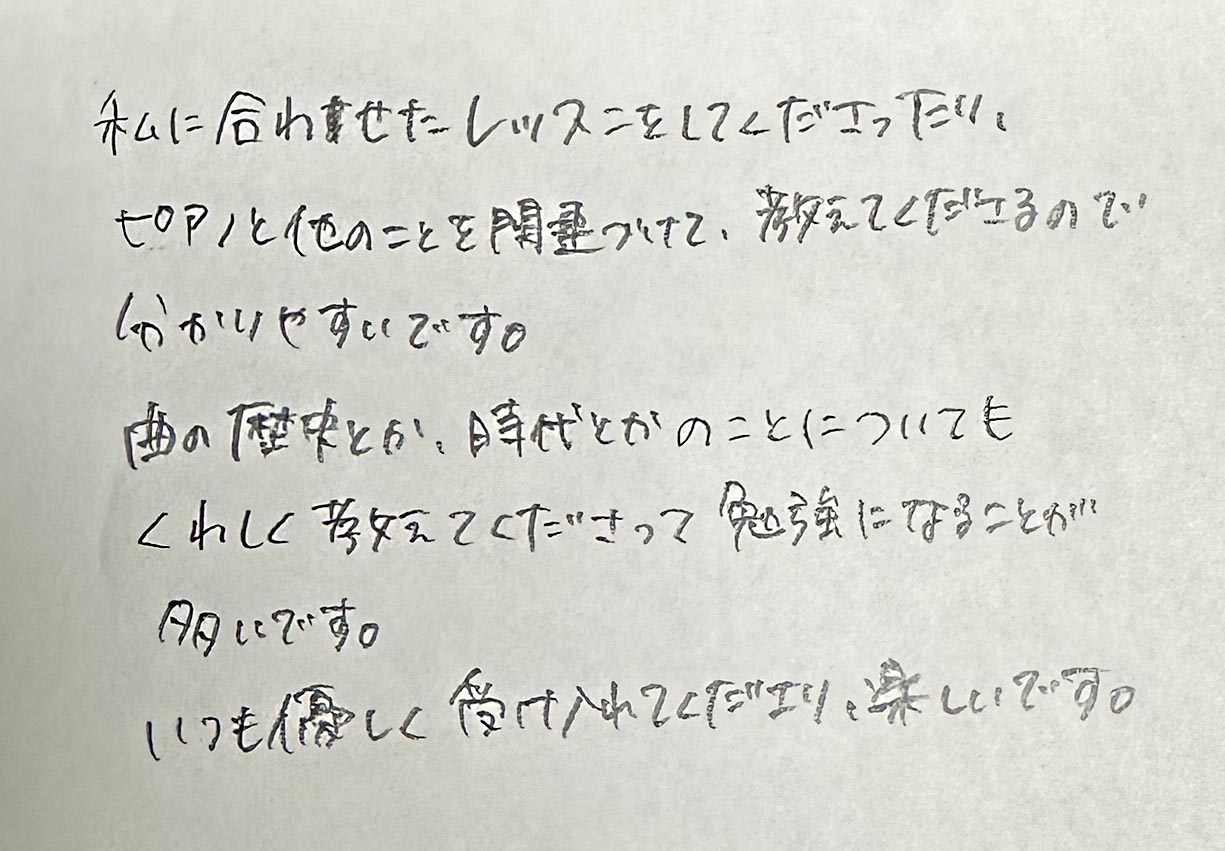 私に合わせたレッスンをしてくださったり、
ピアノと他のことを関連づけて、教えてくださるので
分かりやすいです。
曲の歴史とか、時代とかのことについても
くわしく教えてくださって勉強になることが
多いです。
いつも優しく受け入れてくださり、楽しいです。